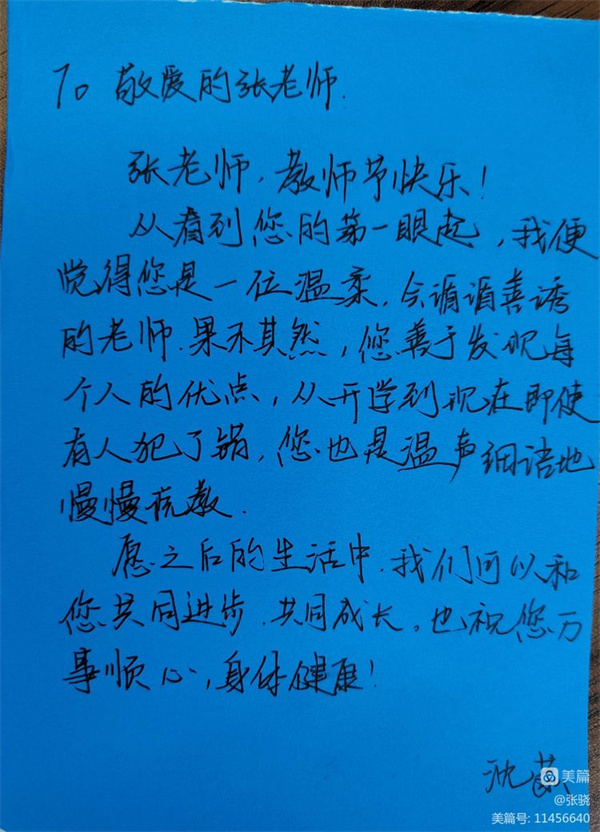 To 敬爱的张老师.
张老师,教师节快乐!
从看到您的第一眼起,我便
觉得您是一位温柔,会循循善诱
的老师.果不其然,您善于发现每
个人的优点,从开学到现在即使
有人犯了错,您也是温声细语地
慢慢说教.
愿之后的生活中,我们可以和
您共同进步.共同成长,也祝您万
事顺心,身体健康!
沈
美篇
@张骁
美篇号: 11456640